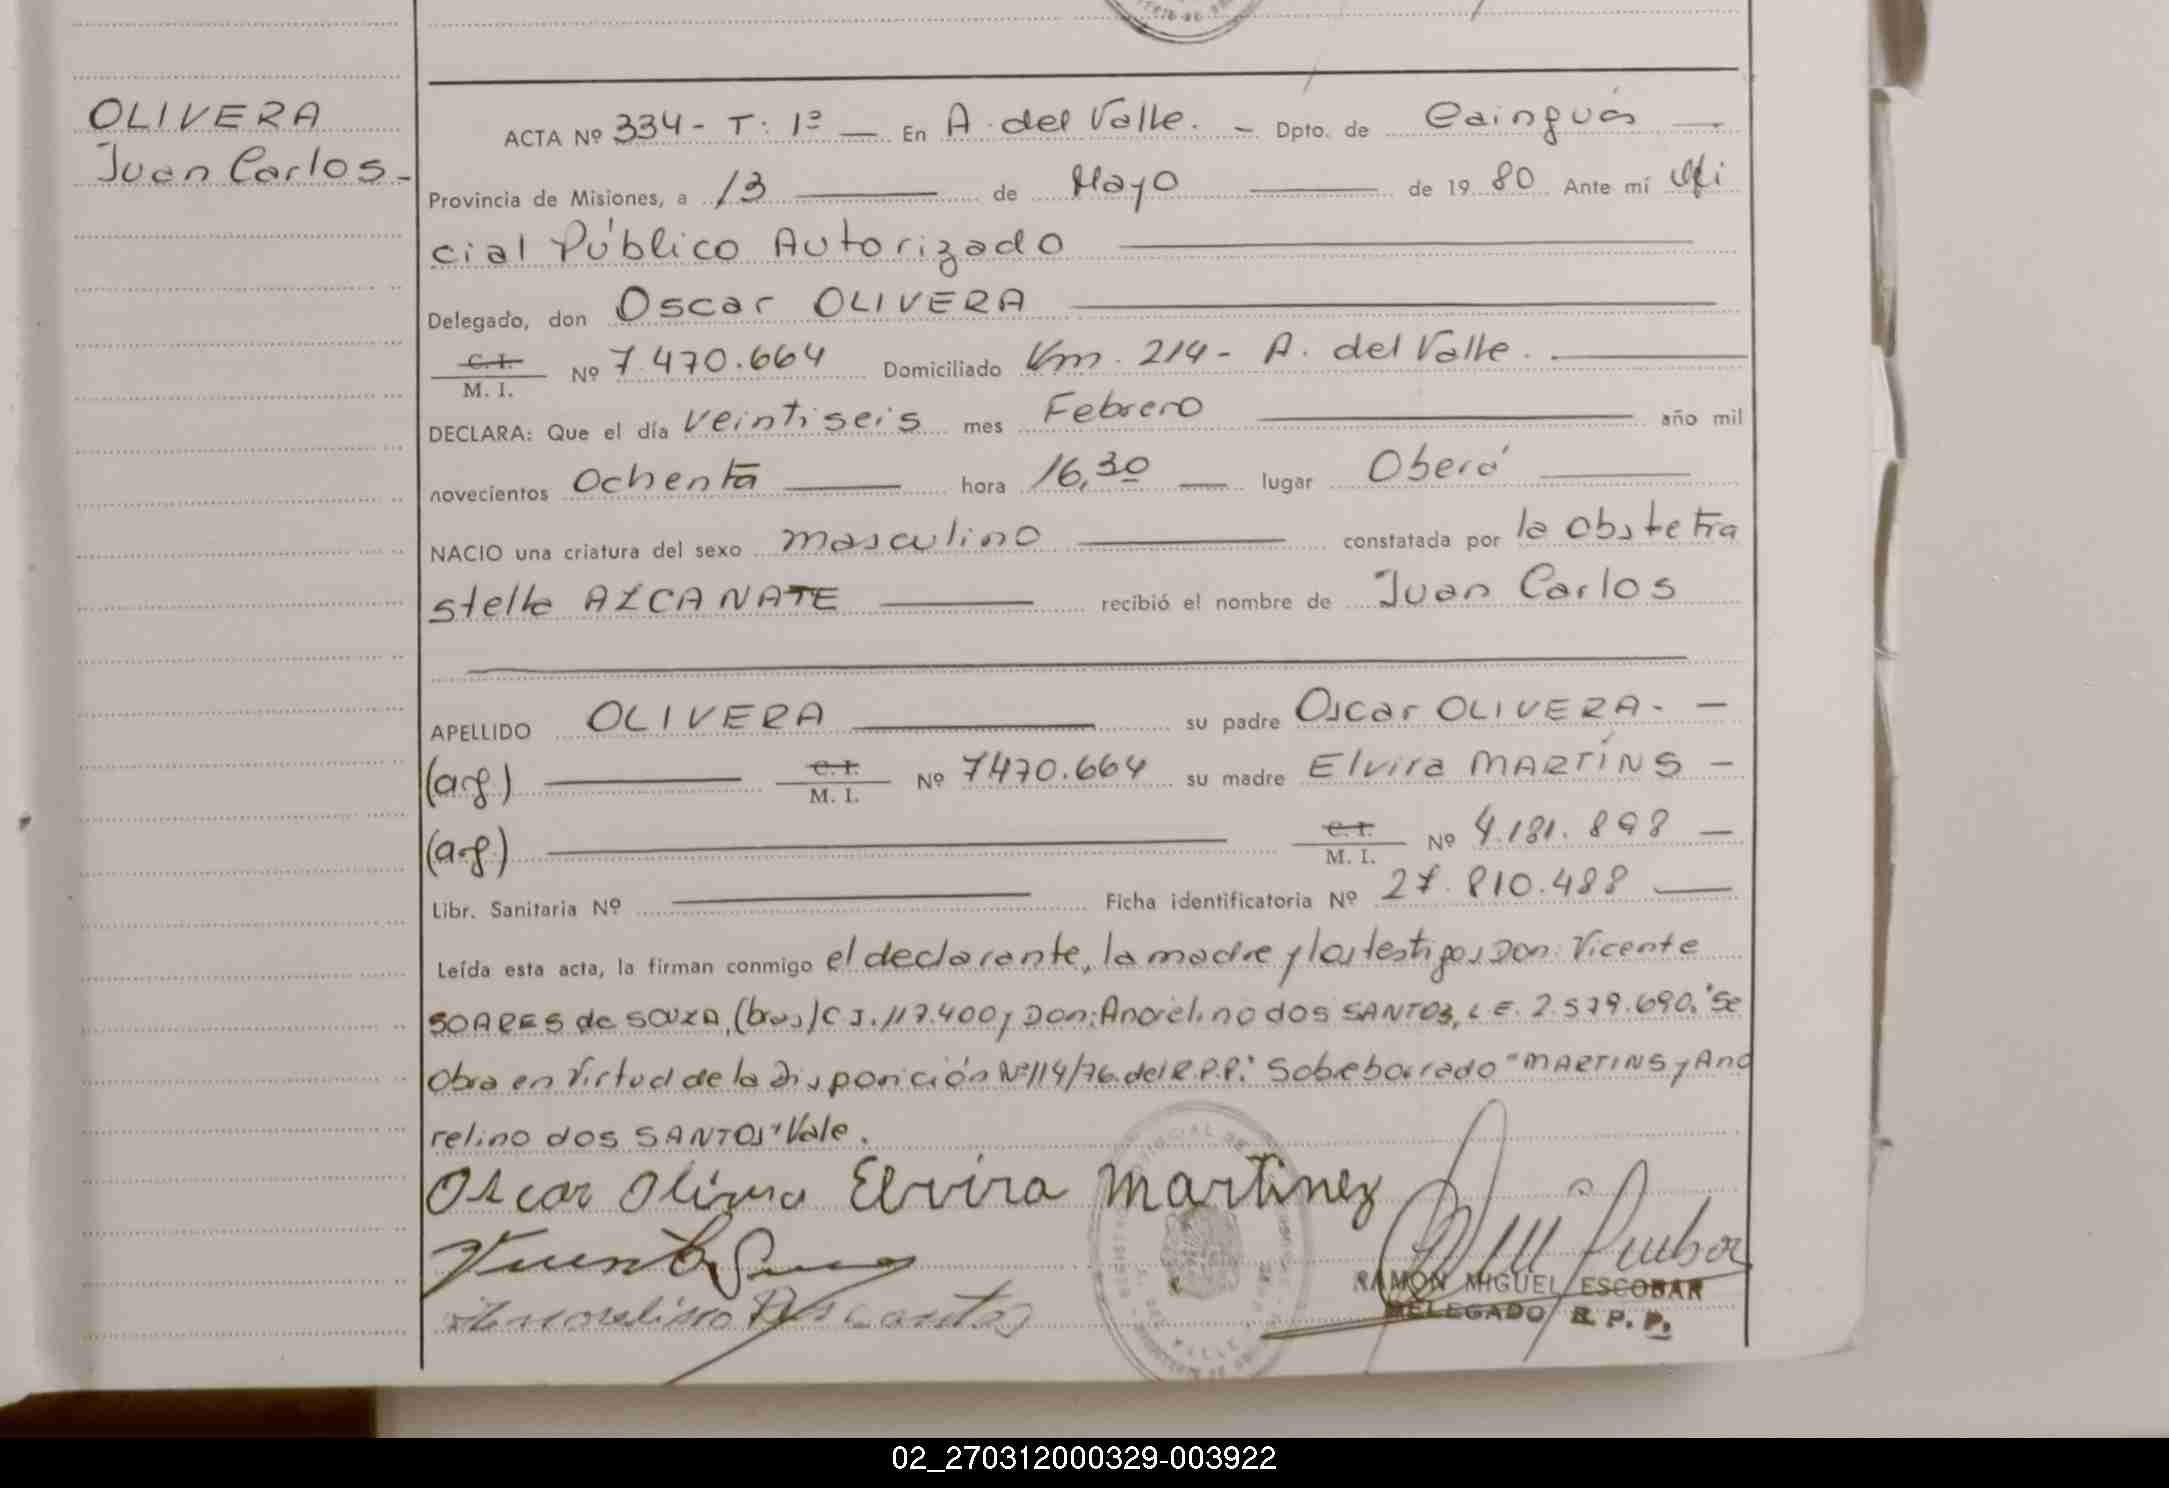 OLIVERA
Juan Carlos.-
ACTA Nº 334- T: 1º — En A. del Valle. - Dpto. de Cainguás —
Provincia de Misiones, a 13 — de Mayo — de 1980 Ante mí Ofi
cial Público Autorizado
Delegado, don Oscar OLIVERA
C. I.
M. I. Nº 7.470.664 Domiciliado Km. 214- A. del Valle. -
DECLARA: Que el día veintiseis mes Febrero año mil
novecientos Ochenta hora 16,30 — lugar Oberá
NACIO una criatura del sexo masculino constatada por la obstetra
stella AZCANATE recibió el nombre de Juan Carlos
APELLIDO OLIVERA su padre Oscar OLIVERA. -
(arg.) C. I.
M. I. Nº 7470.664 su madre Elvira MARTINS -
(arg.) C. I.
M. I. Nº 4.181.898 —
Libr. Sanitaria Nº Ficha identificatoria Nº 27.810.488 —
Leída esta acta, la firman conmigo el declarante, la madre y los testigos Don: Vicente
SOARES de SOUZA, (bras) C I. 117.400 y Don: Anorelino dos SANTOS, L E. 2.579.690. "Se
Obra en Virtud de la Disposición Nº114/76. del R.P.P." Sobreborrado "MARTINS y Ano
relino dos SANTOS" Vale.
Oscar Olivera Elvira Martinez
RAMON MIGUEL ESCOBAR
DELEGADO R. P. P.
02_270312000329-003922